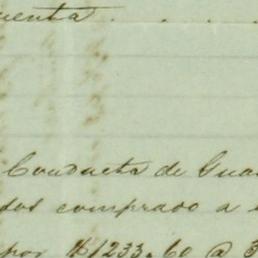 uenta . . . .
Conducta de Gua
dos comprado a
por $1233.60 @ 3